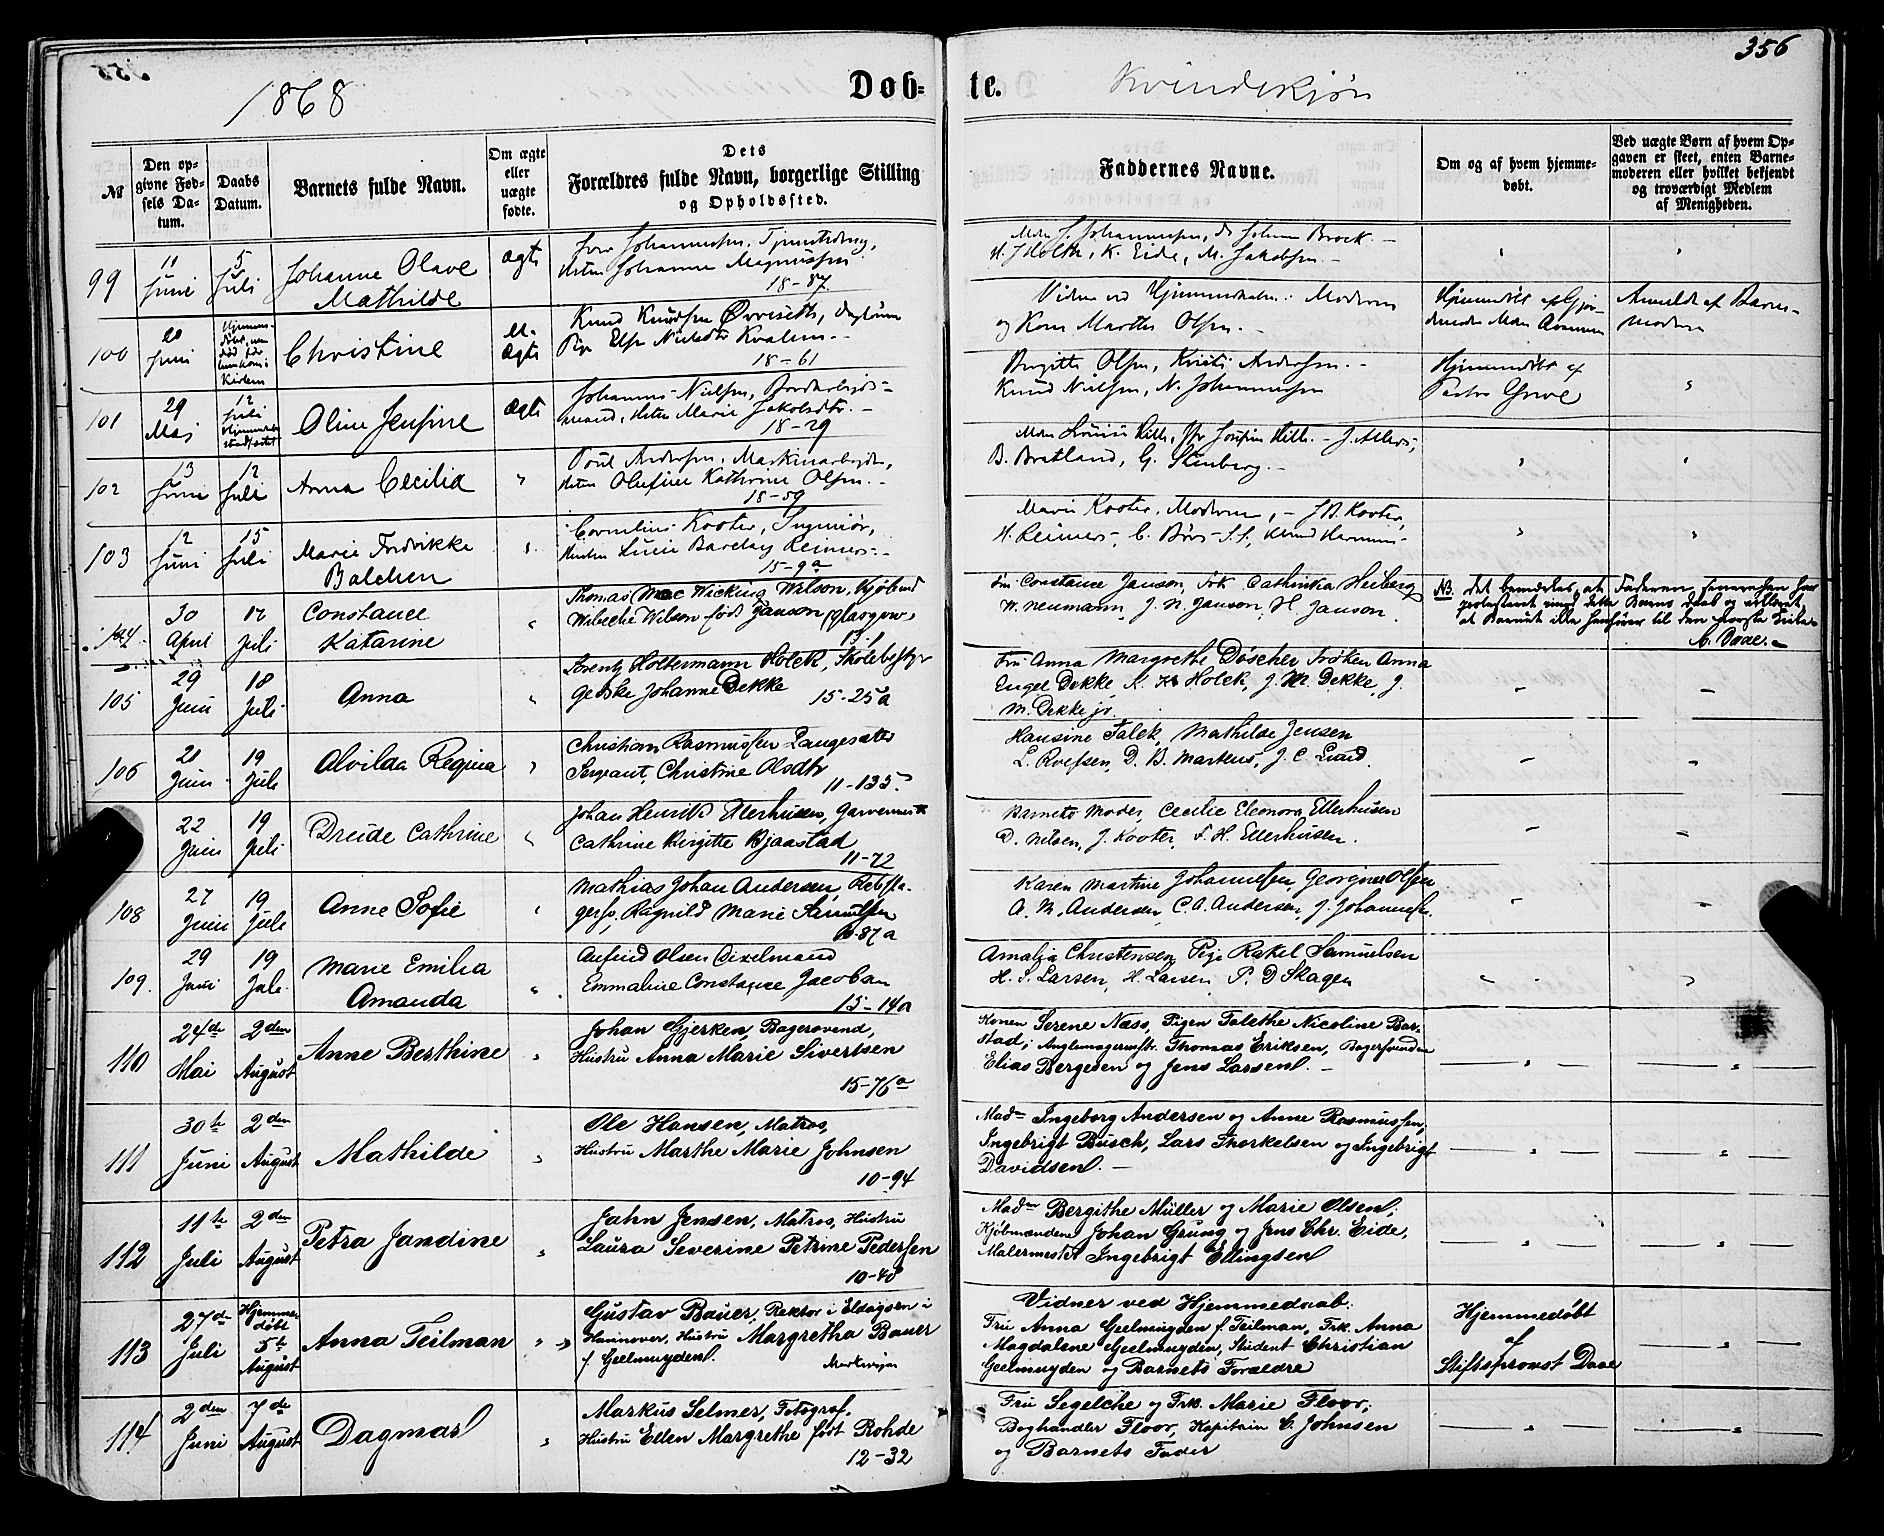 356
1868
Døb-
te.
Kvindekjøn
№
Den op-
givne Fød-
sels Da-
tum.
Daabs
Datum.
Barnets fulde Navn.
Om ægte
eller
uægte
fødte.
Dets
Forældres fulde Navn, borgerlige Stilling
og Opholdssted.
Faddernes Navne.
Om og af hvem hjemme-
døbt.
Ved uægte Børn af hvem Op-
gaven er skeet, enten Barne-
moderen eller hvilket bekjendt
og troværdigt Medlem
af Menigheden.
99
11
Juni
5
Juli
Johanne Olave
Mathilde
ægte
Johannessen,
Johanne Magnussen
18-87
J. Johannessen, do Johanne Brock.
H. J. Holthe, K. Eide, M. Jakobsen.
100
20
Juni
Christine
u-
ægte
Knud Knudsen
Pige Else Nielsdtr Kvalem.
18-61
Vidner ved Hjemmedaaben: Moderen
og Kone Marthe Olsen.
Hjemmedøbt af
Anmeldt af Barne-
moderen
101
29
Maj
12
Juli
Oline Jensine
ægte
Johannes Nielsen,
mand, Marie Jakobsdtr.
18-29
Birgitte Olsen, Kristi Andersen.
Knud Nielsen, N. Johannessen
Hjemmedøbt af
Pastor Grove
102
13
Juni
12
Juli
Anna Cecilia
"
Poul Andersen, Maskinarbejder,
Olufine Kathrine Olsen.
18-59
B. Bratland, G. Stenberg.
103
12
Juni
15
Juli
Marie Fredrikke
Balchen
"
Cornelius Kooter, Ingeniør,
Hustru Lucie Barclay Reimers
15-9a
Marie Kooter, Moderen, J. B. Kooter,
H. Reimers, C. Børs
104
30
April
17
Juli
Constance
Katarine
"
Thomas Mac Wicking Wilson, Kjøbmd
Wibecke Wilson født Janson (Glasgow)
Fru Constance Janson, Frk Cathinka Heiberg
W. Neumann, J. N. Janson, H. Janson
NB. Det bemærkes, at Faderen har
protesteret imod dette Barns Daab og erklæret,
at Barnet ikke henhører til den norske Kirke
105
29
Juni
18
Juli
Anna
"
Lrentz Holtermann Holck, Skolebestyr
Geske Johanne Dekke
15-25a
Fru Anna Margrethe Döscher, Frøken Anna
Engel Dekke, K. Holck, J. M. Dekke, J.
M. Dekke jr
106
20
Juni
19
Juli
Alvilda Regina
"
Christian Rasmussen Langesæter
Sergeant, Christine Olsdtr
11-135
Hansine Falck, Mathilde Jensen
L. Roefsen, D. B. Martens, J. C. Lund
22
Juni
19
Juli
Dreude Cathrine
"
Johan Henrik Ellerhusen, Garverm
Cathrine Birgitte Bjaastad
11-72
Barnets Moder, Cecilie Eleonora Ellerhusen
D. Nilsen, J. Kooter, F. H. Ellerhusen.
108
27
Juni
19
Juli
Anne Sofie
"
Mathias Johan Andersen, Rebsla-
gersv, Ragnild Marie Samuelsen
87a
Karen Martine Johannessen, Georgine Olsen
A. M. Andersen, C. A. Andersen, J. Johannesen.
109
29
Juni
19
Juli
Marie Emilia
Amanda
"
Anfind Olsen
Emmaline Constance Jacobsen
15-14a
Amalia Christensen, Pige Rakel Samuelsen
H. S. Larsen, H. Larsen, P. D. Skagen
110
24de
Mai
2den
August
Anne Berthine
"
Johan Gjerken, Bagersvend,
Hustru Anna Marie Sivertsen
15-76a
Konen Serene Næss, Pigen Talethe Nicoline Bar-
stad, Anglemagermstr. Thomas Eriksen, Bagersvendene
Elias Bergesen og Jens Larsen.
111
30te
Juni
2den
August
Mathilde
"
Ole Hansen, Matros,
Hustru Marthe Marie Johnsen
10-94
Madm Ingeborg Andersen og Anne Rasmussen,
Ingebrigt Busch, Lars Thorkelsen og Ingebrigt
Davidsen.
112
11te
Juli
2den
August
Petra Jandine
"
Jahn Jensen, Matros, Hustru
Laura Severine Petrine Pedersen
10-40
Madm Bergithe Müller og Marie Olsen;
Kjøbmændene Johan Grung og Jens Chr. Eide,
Malermester Ingebrigt Ellingsen
113
27de
Juli
Hjemme
døbt
5te
August
Anna Teilman
"
Gustav Bauer, Rektor i Eldagsen i
Hannover, Hustru Margretha Bauer
f. Geelmuyden.
Markveien
Vidner ved Hjemmedaab:
Fru Anna Geelmuyden f. Teilman, Frk. Anna
Magdalene Geelmuyden, Student Christian
Geelmuyden og Barnets Forældre
Hjemmedøbt
af
Stiftsprovst Daae
114
2den
Juni
7de
August
Dagmar
"
Markus Selmer, Fotograf,
Hustru Ellen Margrethe født Rohde
12-32
Fru Segelche og Frk. Marie Floor,
Boghandler Floor, Kapitain C. Johnsen
og Barnets Fader